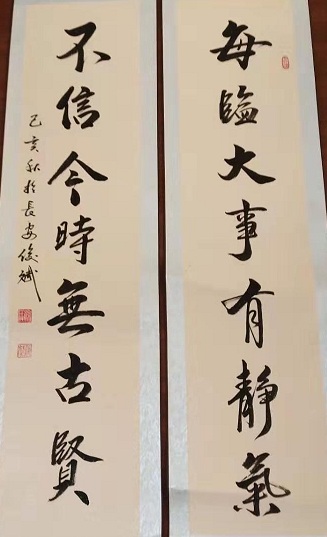 每臨大事有靜氣
不信今時無古賢
己亥秋於長安俊斌